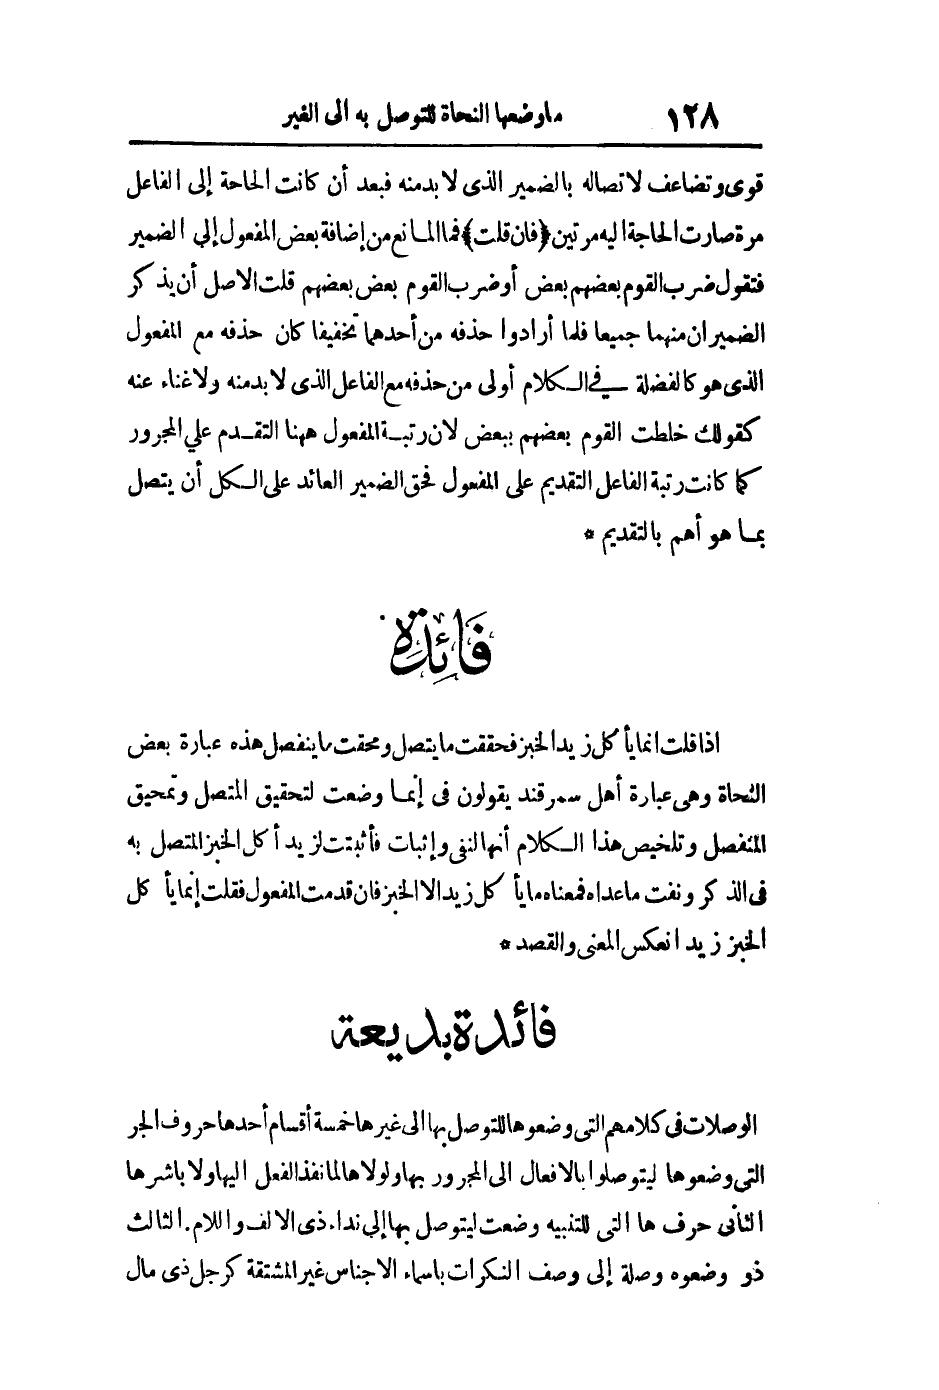 ١٢٨ ماوضعها النحاة للتوصل به الى الغير
قوى وتضاعف لاتصاله بالضمير الذى لابدمنه فبعد أن كانت الحاحة إلى الفاعل
مرة صارت الحاجة اليه مرتين ﴿فان قلت﴾ فما المانع من إضافة بعض المفعول إلى الضمير
فتقول ضرب القوم بعضهم بعض أوضرب القوم بعض بعضهم قلت الاصل أن يذكر
الضميران منهما جميعا فلما أرادوا حذفه من أحدهما تخفيفا كان حذفه مع المفعول
الذى هو كالفضلة في الكلام أولى من حذفه مع الفاعل الذى لابدمنه ولاغناء عنه
كقولك خلطت القوم بعضهم ببعض لان رتبة المفعول ههنا التقدم علي المجرور
كما كانت رتبة الفاعل التقديم على المفعول فحق الضمير العائد على الكل أن يتصل
بما هو أهم بالتقديم *
فائدة
اذاقلت انمايأكل زيدالخبز فحققت مايتصل ومحقت ماينفصل هذه عبارة بعض
النحاة وهى عبارة أهل سمرقند يقولون فى إنما وضعت لتحقيق المتصل وتمحيق
المنفصل وتلخيص هذا الكلام أنها لنفى وإثبات فأثبتت لزيد أكل الخبز المتصل به
فى الذكر ونفت ماعداه فمعناه مايأكل زيدالا الخبز فان قدمت المفعول فقلت إنمايأكل
الخبز زيد انعكس المعنى والقصد *
فائدة بديعة
الوصلات فى كلامهم التى وضعوها للتوصل بها الى غيرها خمسة أقسام أحدها حروف الجر
التى وضعوها ليتوصلوا بالافعال الى المجرور بها ولولاها لما نفذ الفعل اليها ولا باشرها
الثانى حرف ها التى للتنبيه وضعت ليتوصل بها إلى نداء ذى الالف واللام. الثالث
ذو وضعوه وصلة إلى وصف النكرات باسماء الاجناس غير المشتقة كرجل ذى مال